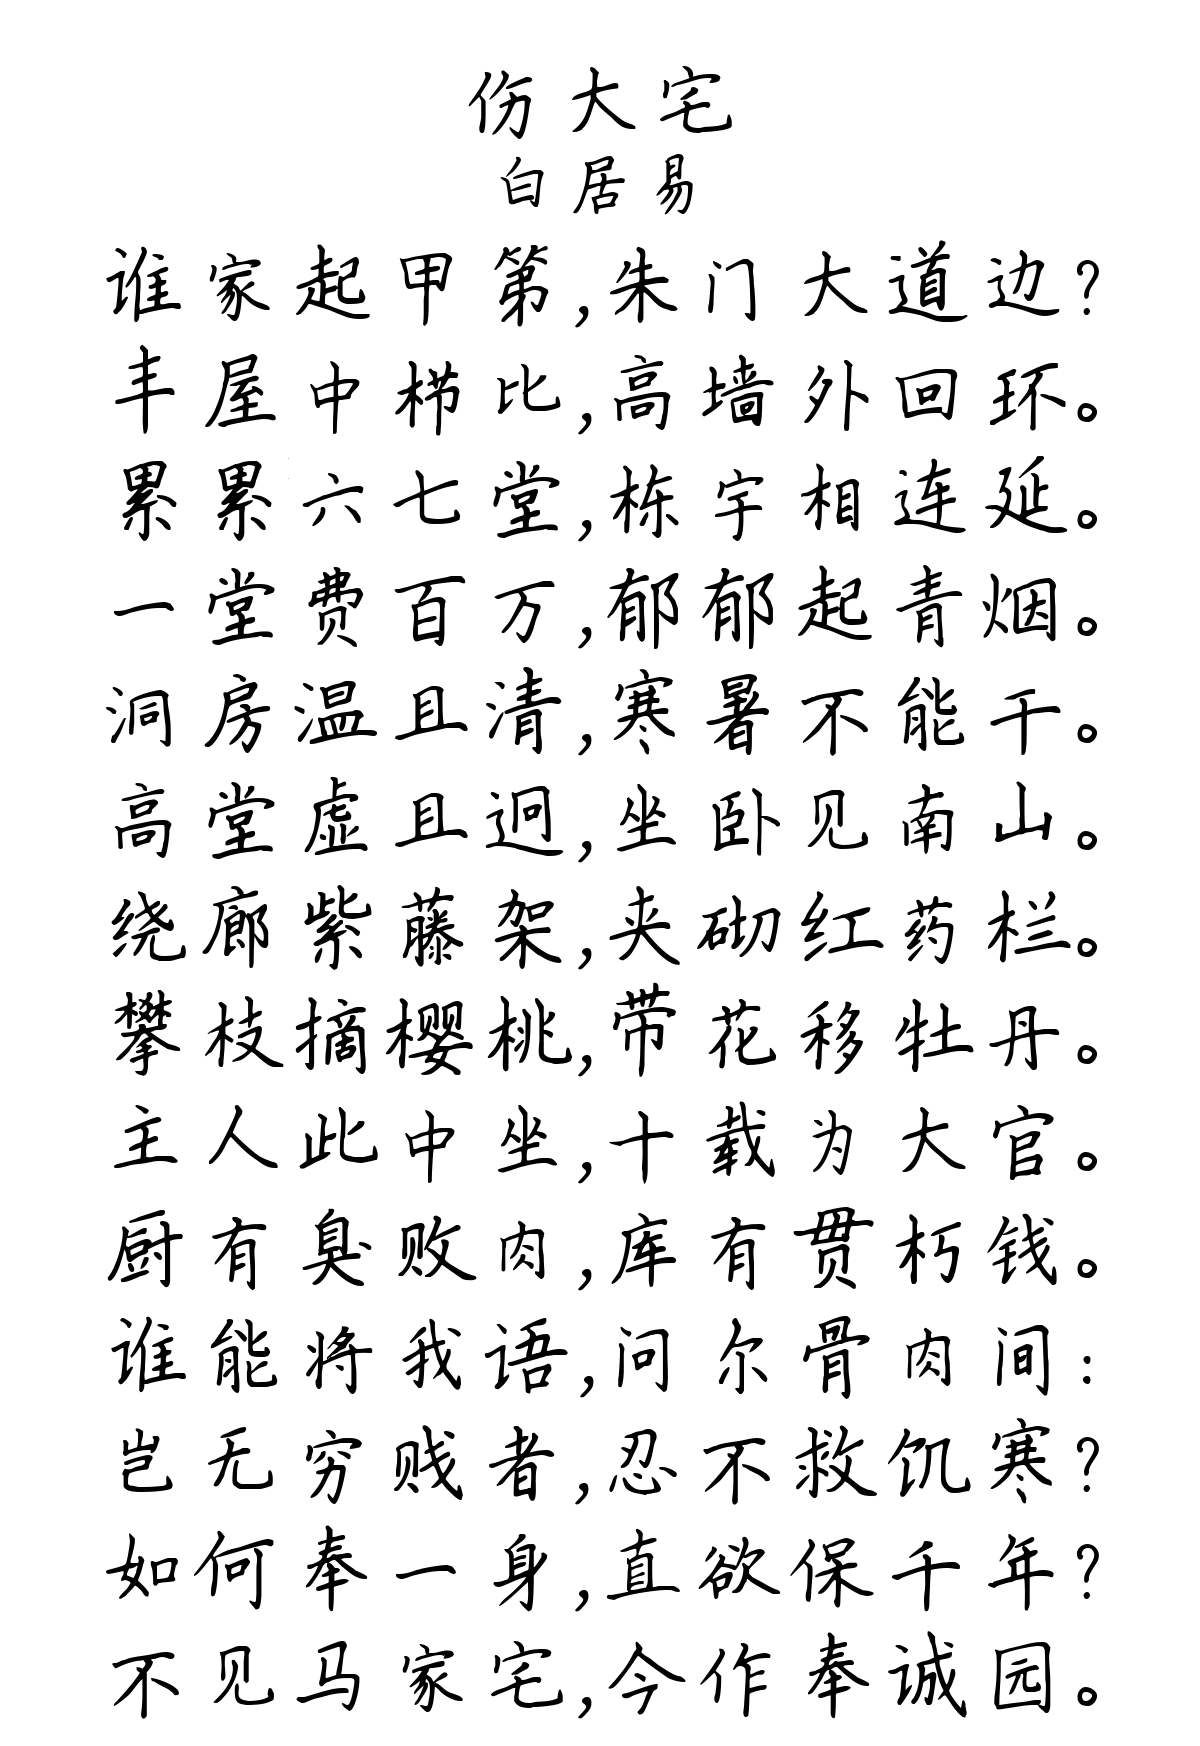 伤大宅
白居易
谁家起甲第,朱门大道边?
丰屋中栉比,高墙外回环。
累累六七堂,栋宇相连延。
一堂费百万,郁郁起青烟。
洞房温且清,寒暑不能干。
高堂虚且迥,坐卧见南山。
绕廊紫藤架,夹砌红药栏。
攀枝摘樱桃,带花移牡丹。
主人此中坐,十载为大官。
厨有臭败肉,库有贯朽钱。
谁能将我语,问尔骨肉间:
岂无穷贱者,忍不救饥寒?
如何奉一身,直欲保千年?
不见马家宅,今作奉诚园。